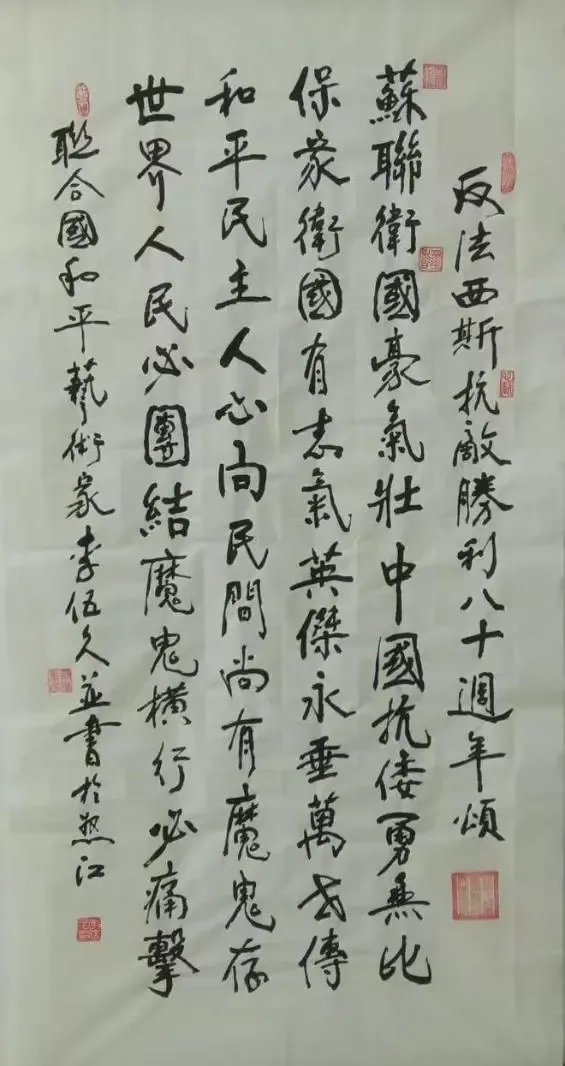 反法西斯抗敵勝利八十週年頌
蘇聯衛國豪氣壯中國抗倭勇無比
保家衛國有志氣英傑永垂萬世傳
和平民主人心向民間尚有魔鬼存
世界人民必團結魔鬼橫行必痛擊
聯合國和平藝術家李伍久並書於熱江